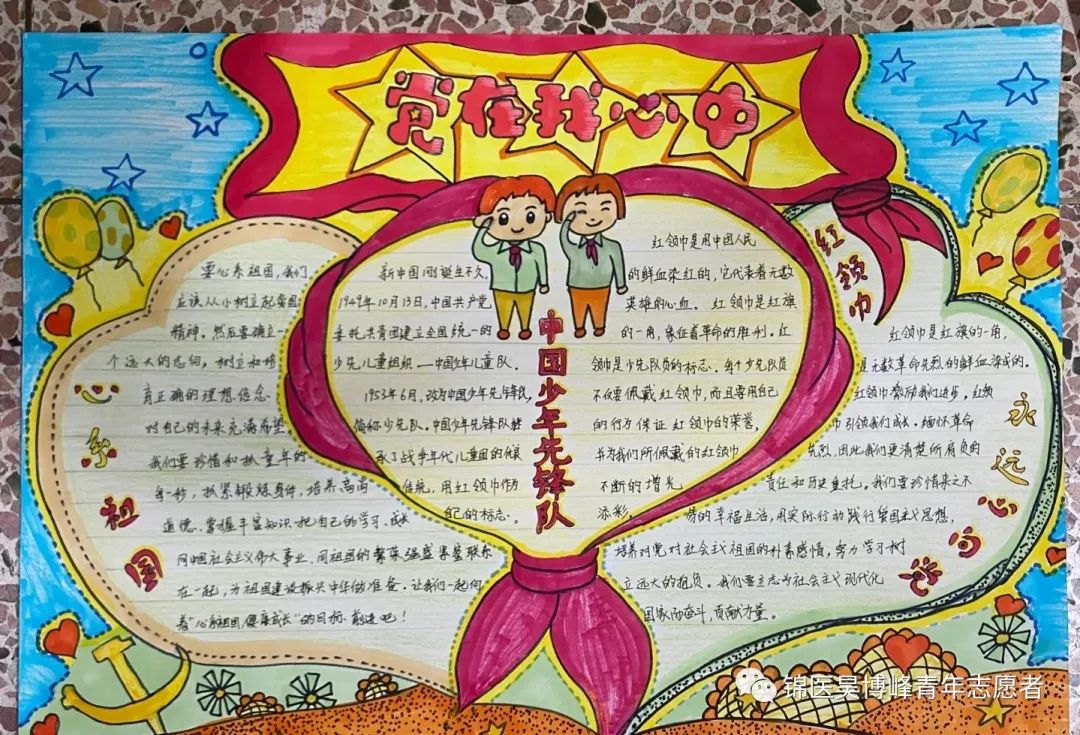 党在我心中
心系祖国
要心系祖国,我们
应该从小树立起爱国
精神。然后要确立一
个远大的志向,树立和培
育正确的理想信念
对自己的未来充满希望
我们要珍惜和抓童年的
每一秒,抓紧锻炼身体,培养高尚
道德、掌握丰富知识把自己的学习、成长
同中国社会主义伟大事业、同祖国的繁荣强盛紧密联系
在一起,为祖国建设振兴中华做准备。让我们一起向
着“心系祖国健康成长”的目标前进吧!
新中国刚诞生不久,
1949年10月13日,中国共产党
委托共青团建立全国统一的
少先儿童组织—中国少年儿童队。
1953年6月,改为中国少年先锋队,
简称少先队。中国少年先锋队继
承了战争年代儿童团的优良
传统,用红领巾作为
自己的标志。
中国少年先锋队
红领巾是用中国人民
的鲜血染红的,它代表着无数
英雄的心血。红领巾是红旗
的一角,象征着革命的胜利。红
领巾是少先队员的标志。每个少先队员
不仅要佩戴红领巾,而且要用自己
的行为保证红领巾的荣誉,
并为我们所佩戴的红领巾
不断的增光
添彩。
红领巾
红领巾是红旗的一角,
是无数革命先烈的鲜血染成的。
红领巾激励我们进步,红领
巾引领我们成长。缅怀革命
先烈,因此我们更清楚所肩负的
责任和历史重托。我们要珍惜来之不
易的幸福生活,用实际行动践行爱国主义思想,
培养对党对社会主义祖国的朴素感情,努力学习树
立远大的抱负。我们要立志为社会主义现代化
国家而奋斗,贡献力量。
永远心向党
锦医昊博峰青年志愿者